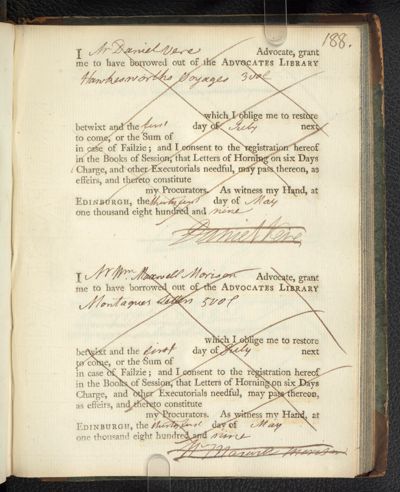 188.
I Mr Daniel Vere Advocate, grant
me to have borrowed out of the ADVOCATES LIBRARY
Hawkesworths Voyages 3 vol
which I oblige me to restore
betwixt and the first day of July next
to come, or the Sum of
in case of Failzie; and I consent to the registration hereof
in the Books of Session, that Letters of Horning on six Days
Charge, and other Executorials needful, may pass thereon, as
effeirs, and thereto constitute
my Procurators. As witness my Hand, at
EDINBURGH, the thirty first day of May
one thousand eight hundred and nine
Daniel Vere
I Mr Wm Maxwell Morison Advocate, grant
me to have borrowed out of the ADVOCATES LIBRARY
Montagues Letters 5 vol
which I oblige me to restore
betwixt and the first day of July next
to come, or the Sum of
in case of Failzie; and I consent to the registration hereof
in the Books of Session, that Letters of Horning on six Days
Charge, and other Executorials needful, may pass thereon,
as effeirs, and thereto constitute
my Procurators. As witness my Hand, at
EDINBURGH, the thirty first day of May
one thousand eight hundred and nine
Wm Maxwell Morison